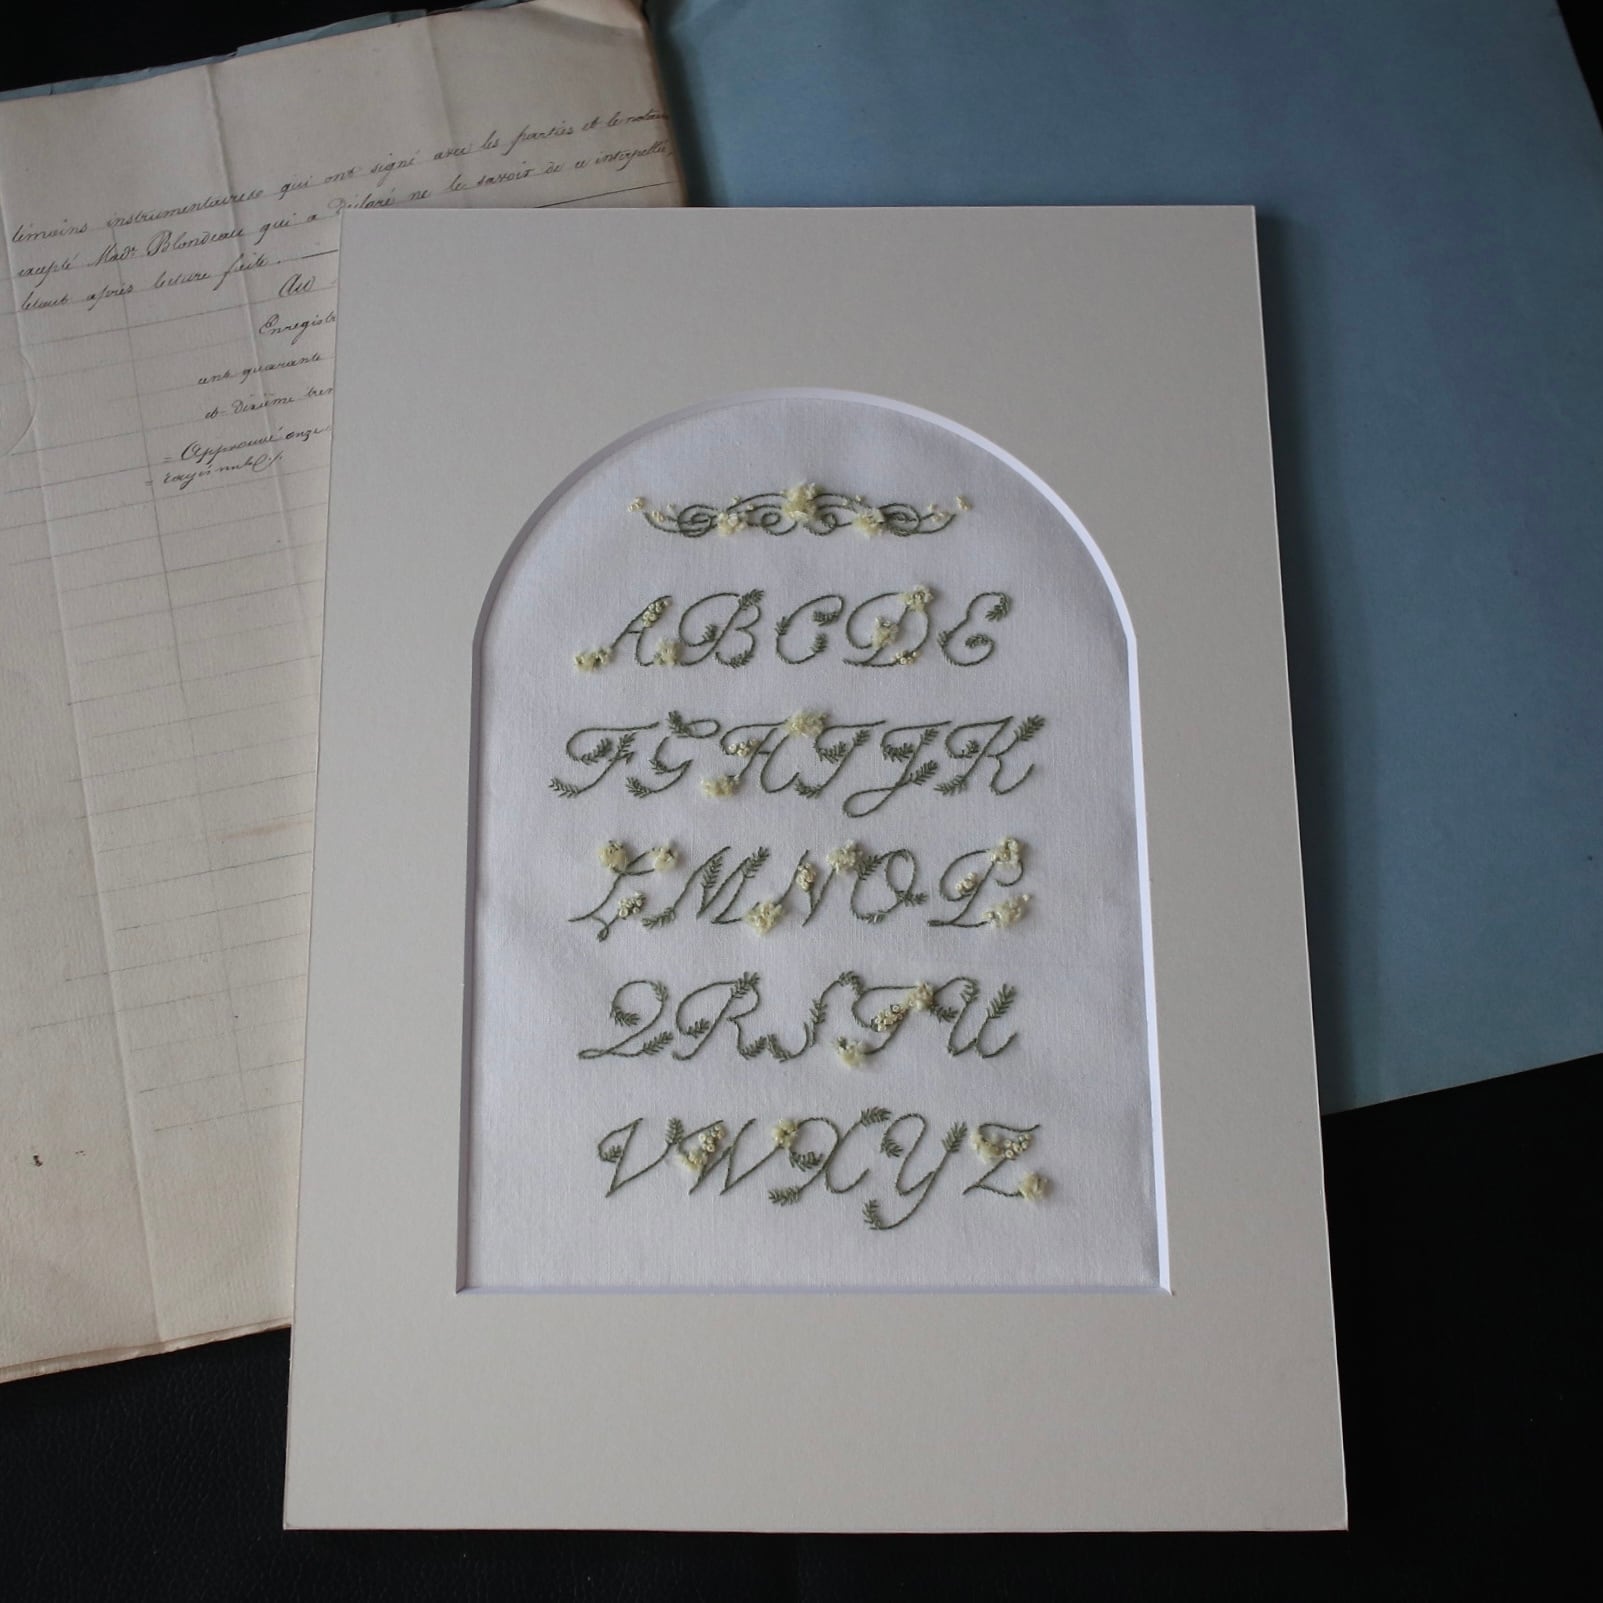 témoins instrumentaires qui ont signé avec les parties et le notaire
excepté Made Blondeau qui a déclaré ne le savoir de ce interpellée
après lecture faite.
Enregist
cent quarante
et dixième
Approuvé onze
A B C D E
F G H I J K
L M N O P
Q R S T U
V W X Y Z